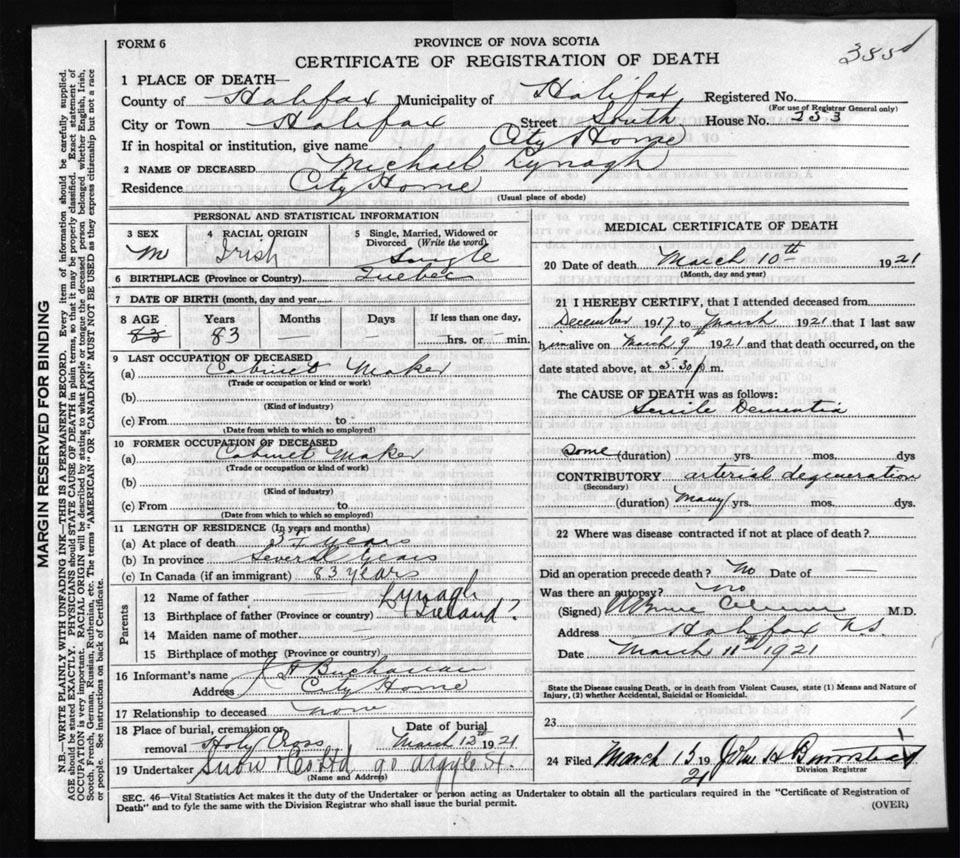 FORM 6
PROVINCE OF NOVA SCOTIA
CERTIFICATE OF REGISTRATION OF DEATH
385
1 PLACE OF DEATH—
County of Halifax Municipality of Halifax Registered No.
(For use of Registrar General only)
City or Town Halifax Street South House No. 253
If in hospital or institution, give name City Home
2 NAME OF DECEASED Michael Lynagh
Residence City Home
(Usual place of abode)
PERSONAL AND STATISTICAL INFORMATION
3 SEX M
4 RACIAL ORIGIN Irish
5 Single, Married, Widowed or Divorced (Write the word) Single
6 BIRTHPLACE (Province or Country) Quebec
7 DATE OF BIRTH (month, day and year)
8 AGE Years Months Days If less than one day,
83 83 — — hrs. or min.
9 LAST OCCUPATION OF DECEASED
(a) Cabinet Maker
(Trade or occupation or kind or work)
(b)
(Kind of industry)
(c) From to
(Date from which to which so employed)
10 FORMER OCCUPATION OF DECEASED
(a) Cabinet Maker
(Trade or occupation or kind of work)
(b)
(Kind of industry)
(c) From to
(Date from which to which so employed)
11 LENGTH OF RESIDENCE (In years and months)
(a) At place of death years
(b) In province Several years
(c) In Canada (if an immigrant) 83 years
Parents
12 Name of father — Lynagh
13 Birthplace of father (Province or country) Ireland?
14 Maiden name of mother —
15 Birthplace of mother (Province or country) —
16 Informant's name J A Buchanan
Address City Home
17 Relationship to deceased none
18 Place of burial, cremation or removal Holy Cross
Date of burial March 12th 1921
19 Undertaker Snow & Co. Ltd 90 Argyle St.
(Name and Address)
MEDICAL CERTIFICATE OF DEATH
20 Date of death March 10th 1921
(Month, day and year)
21 I HEREBY CERTIFY, that I attended deceased from
December 1917 to March 1921 that I last saw
him alive on March 9 1921 and that death occurred, on the
date stated above, at 5.30 p.m.
The CAUSE OF DEATH was as follows:
Senile Dementia
Some (duration) yrs. mos. dys
CONTRIBUTORY arterial degeneration
(Secondary)
(duration) Many yrs. mos. dys.
22 Where was disease contracted if not at place of death?
Did an operation precede death? No Date of —
Was there an autopsy? no
(Signed) M.D.
Address Halifax N.S.
Date March 11th 1921
State the Disease causing Death, or in death from Violent Causes, state (1) Means and Nature of
Injury, (2) whether Accidental, Suicidal or Homicidal.
23
24 Filed March 15 1921 John H
Division Registrar
SEC. 46—Vital Statistics Act makes it the duty of the Undertaker or person acting as Undertaker to obtain all the particulars required in the "Certificate of Registration of
Death" and to fyle the same with the Division Registrar who shall issue the burial permit.
(OVER)
MARGIN RESERVED FOR BINDING
N.B.—WRITE PLAINLY WITH UNFADING INK—THIS IS A PERMANENT RECORD. Every item of information should be carefully supplied.
AGE should be stated EXACTLY. PHYSICIANS should STATE CAUSE OF DEATH in plain terms, so that it may be properly classified. Exact statement of
OCCUPATION is very important. RACIAL ORIGIN will be described by stating to what people or tongue the deceased person belonged whether English, Irish,
Scotch, French, German, Russian, Ruthenian, etc. The terms "AMERICAN" OR "CANADIAN" MUST NOT BE USED as they express citizenship but not a race
or people. See instructions on back of Certificate.